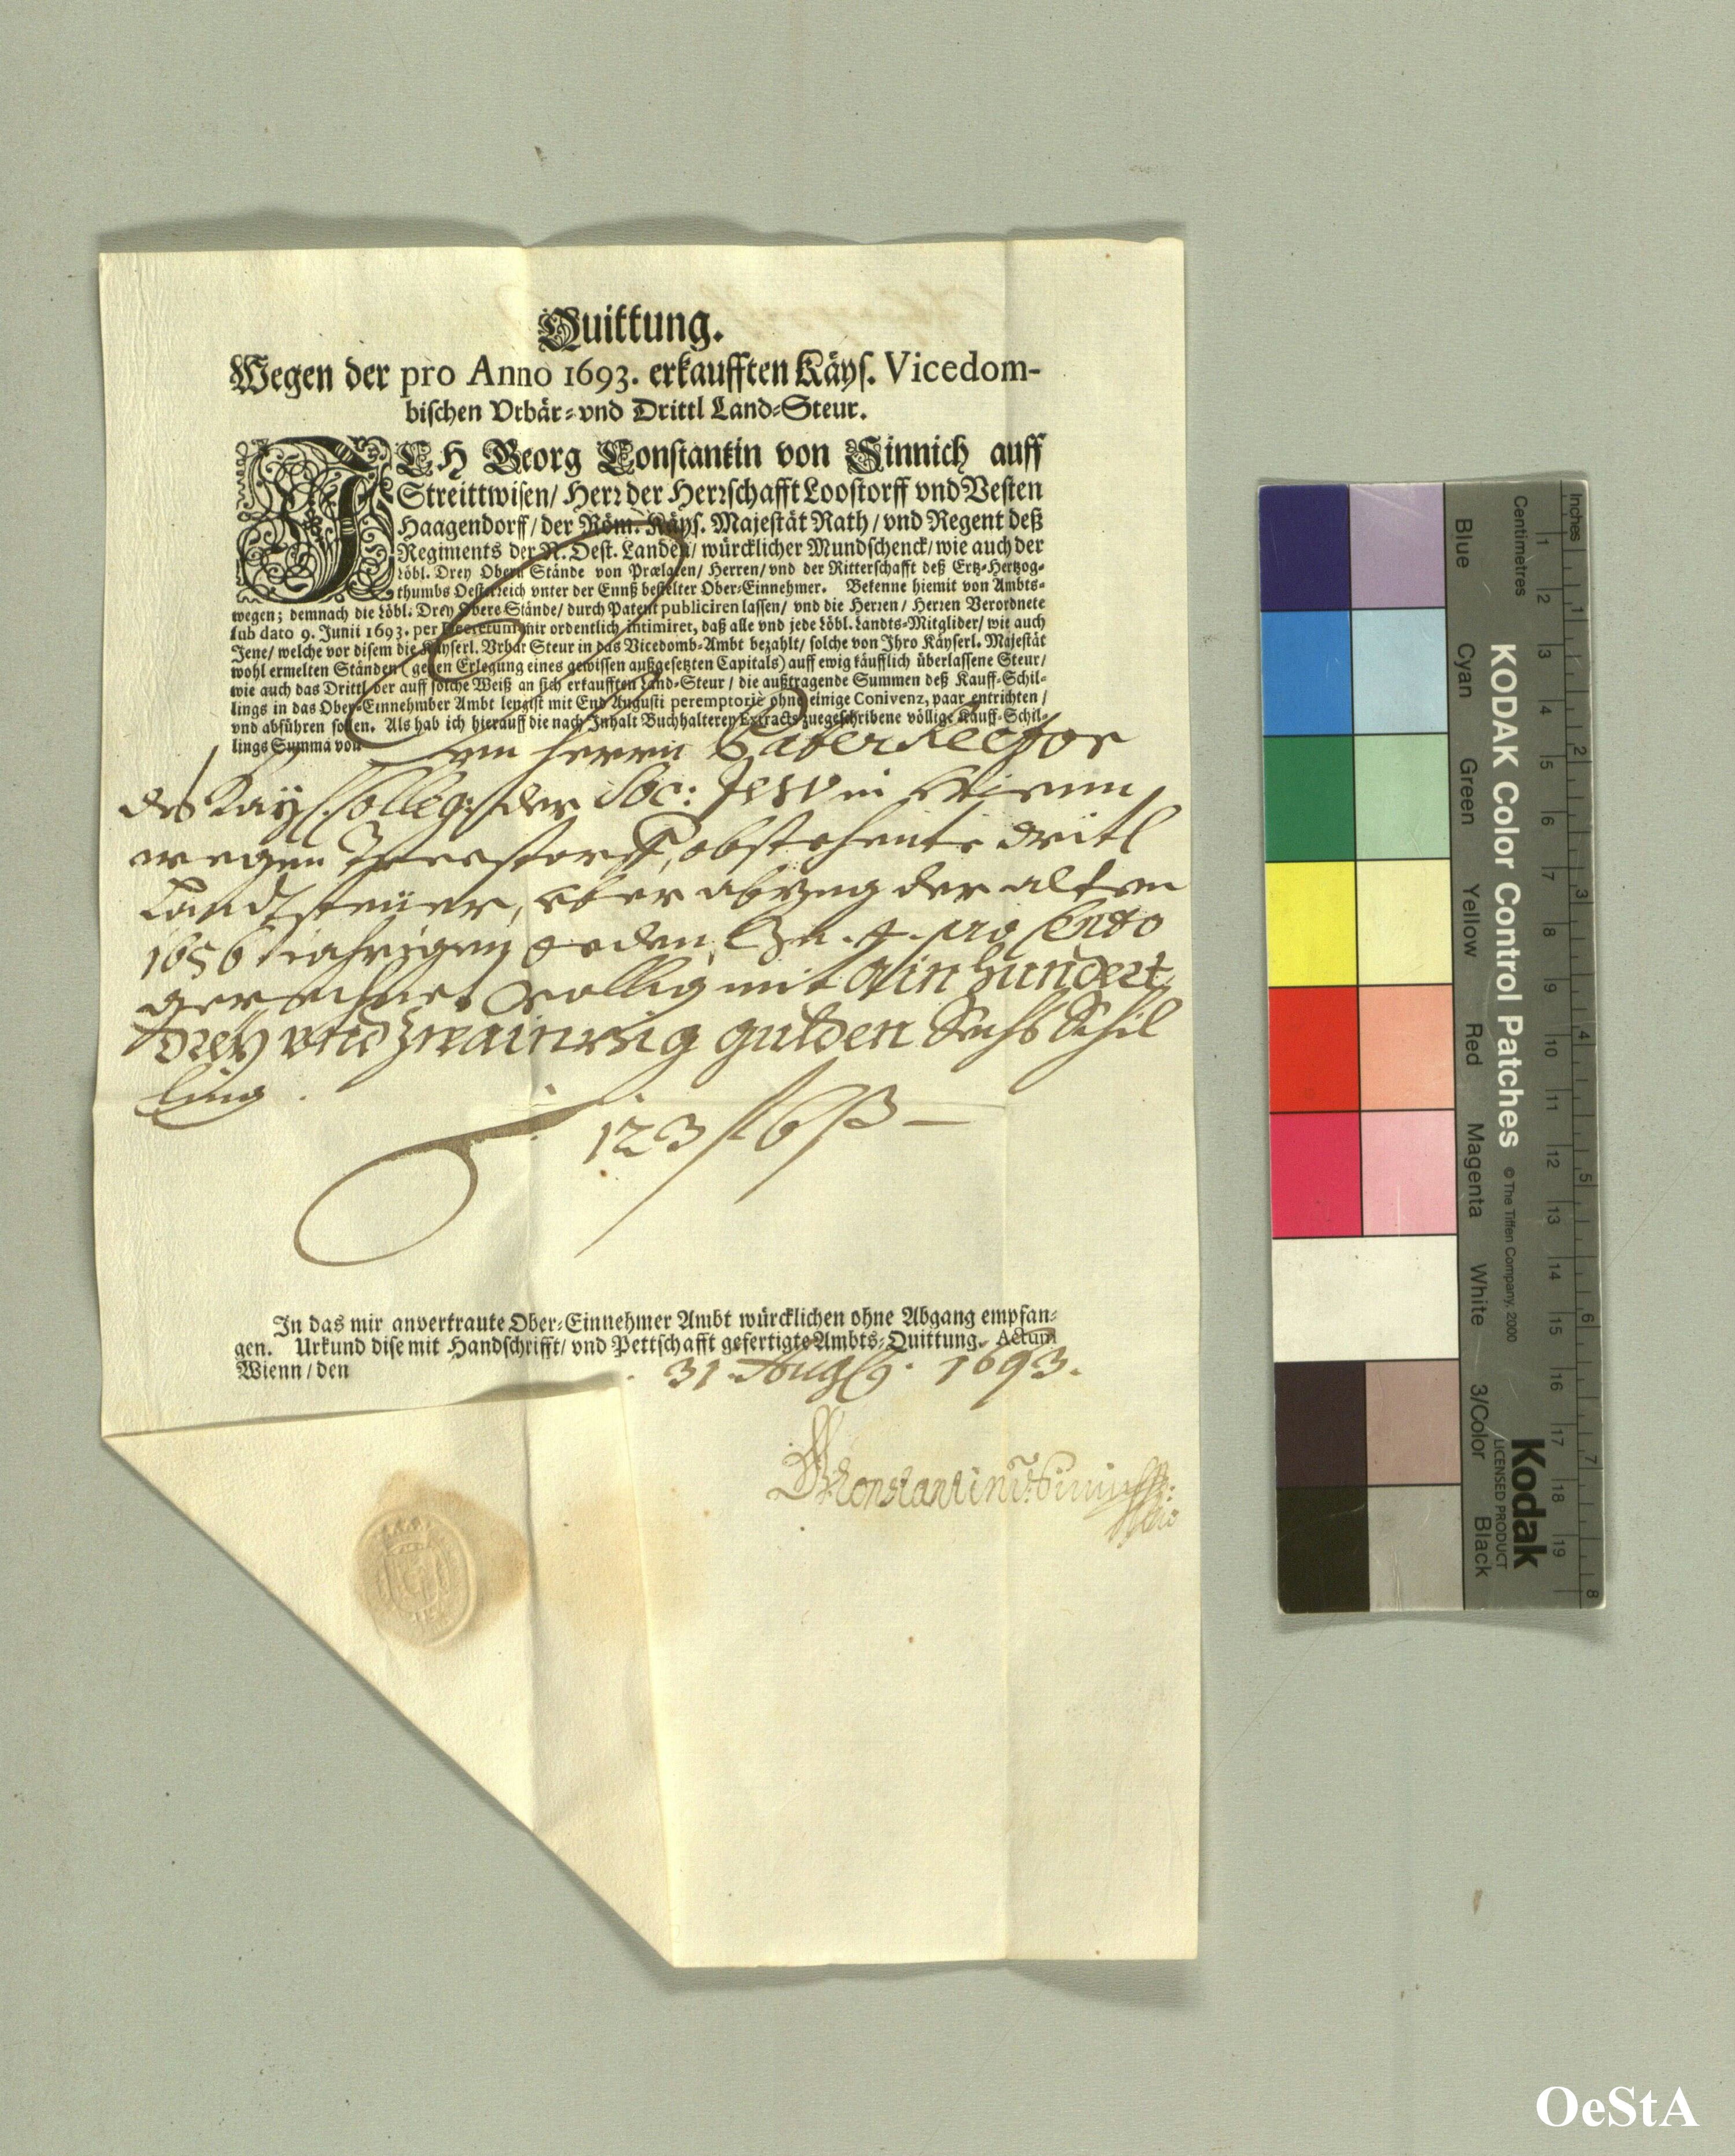 Quittung.
Wegen der pro Anno 1693. erkaufften Käys. Vicedom-
bischen Vrbär-vnd Drittl Land-Steur.
ICH Georg Constantin von Sinnich auff
Streittwisen/ Herr der Herrschafft Loostorff vnd Vesten
Haagendorff/ der Röm. Käys. Majestät Rath/ vnd Regent deß
Regiments der N. Oest. Landen/ würcklicher Mundschenck/ wie auch der
Löbl. Drey Obern Stände von Prælaten/ Herren/ vnd der Ritterschafft deß Ertz-Hertzog-
thumbs Oesterreich vnter der Ennß bestelter Ober-Einnehmer. Bekenne hiemit von Ambts-
wegen; demnach die Löbl. Drey Obere Stände/ durch Patent publiciren lassen/ vnd die Herren/ Herren Verordnete
sub dato 9. Junii 1693. per Decretum mir ordentlich intimiret, daß alle vnd jede Löbl. Landts-Mitglider/ wie auch
Jene/ welche vor disem die Käyserl. Vrbar Steur in das Vicedomb-Ambt bezahlt/ solche von Ihro Käyserl. Majestät
wohl ermelten Ständen (gegen Erlegung eines gewissen außgesetzten Capitals) auff ewig käufflich überlassene Steur/
wie auch das Drittl der auff solche Weiß an sich erkaufften Land-Steur/ die außtragende Summen deß Kauff-Schil-
lings in das Ober-Einnehmber Ambt lengist mit End Augusti peremptoriè ohne einige Conivenz, paar entrichten/
vnd abführen sollen. Als hab ich hierauff die nach Inhalt Buchhalterey Extracts zuegeschribene völlige Kauff-Schil-
lings Summa von
dem herrn Pater Rector
des Kay: Colleg: der Soc: Jesu in Wienn
wegen obstehente dritl
Landtsteüer, über abzug der alten
1656 jahrigen zu 4. pro Cento
gerechnet völlig mit Ain hundert
Drey vnd Zwainzig gulden Sechs Schil
ling.
123 fl 6 ß —
In das mir anvertraute Ober-Einnehmer Ambt würcklichen ohne Abgang empfan-
gen. Urkund dise mit Handschrifft/ vnd Pettschafft gefertigte Ambts-Quittung. Actum
Wienn/ den
31. Aug. 1693.
Constantin v. Sinnich
Inches
Centimetres
KODAK Color Control Patches
© The Tiffen Company, 2000
Blue Cyan Green Yellow Red Magenta White 3/Color Black
1 2 3 4 5 6 7 8 9 10 11 12 13 14 15 16 17 18 19
1 2 3 4 5 6 7 8
Kodak
LICENSED PRODUCT
OeStA